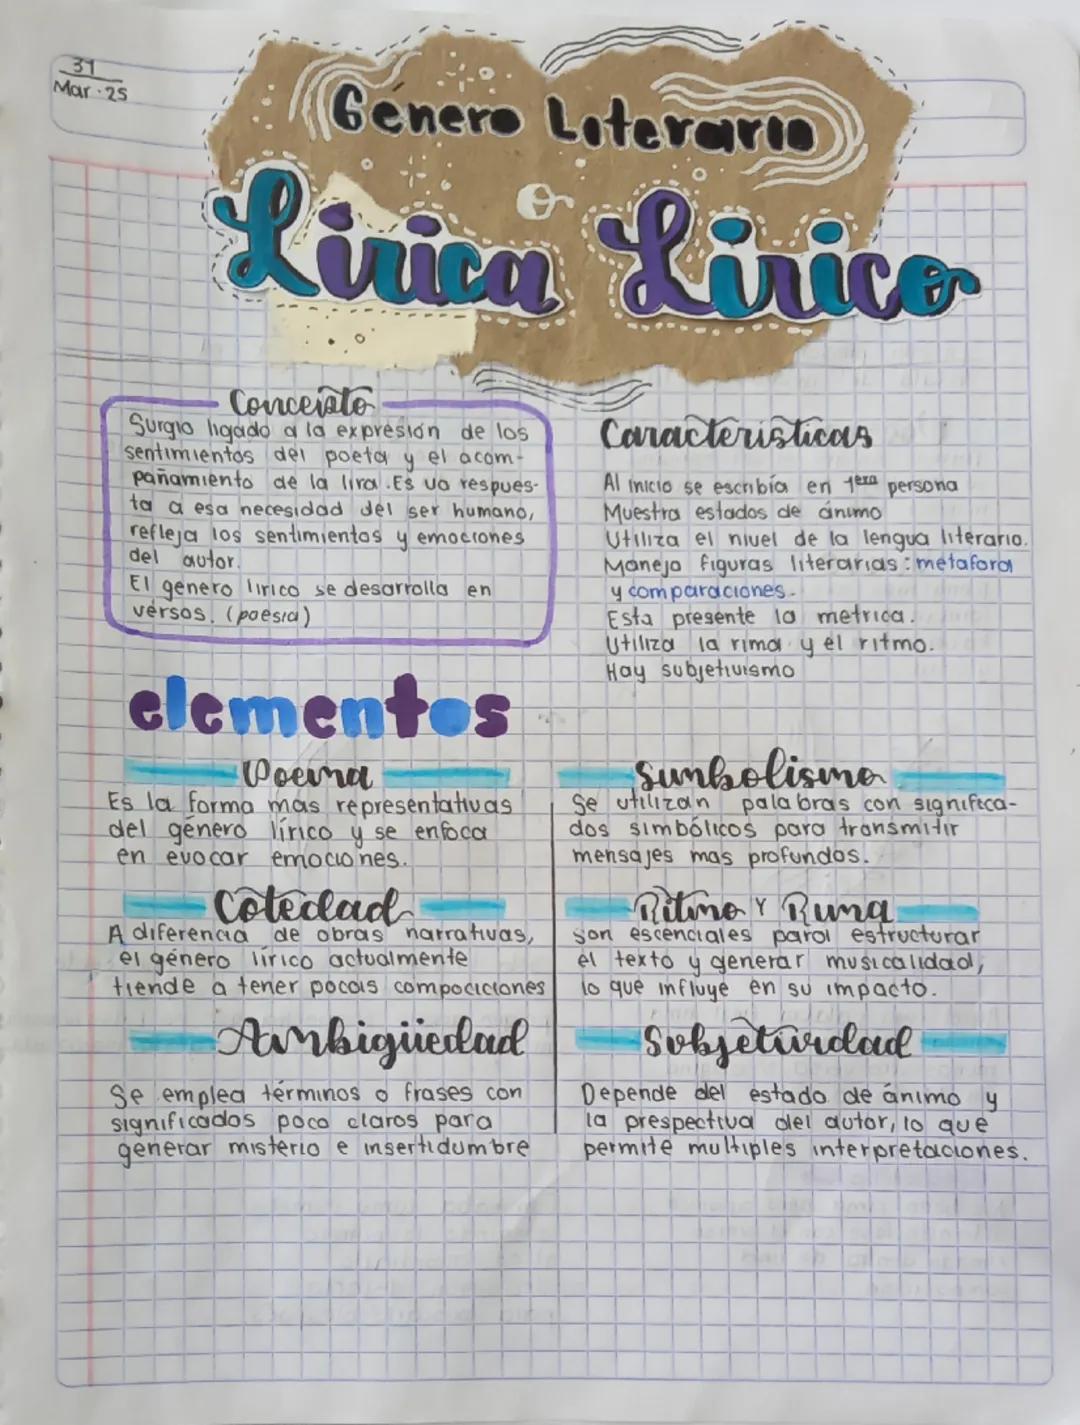 31
Mar. 25
Género Literario
Lírica Lírico
Concepto
Surgio ligado a la expresión de los
sentimientos del poeta y el acom-
pañamiento de la lira. Es va respues-
ta a esa necesidad del ser humano,
refleja los sentimientos y emociones
del autor.
El género lirico se desarrolla en
versos. (poesia)
Caracteristicas
Al inicio se escribía en 1era persona
Muestra estados de ánimo
Utiliza el nivel de la lengua literario.
Maneja figuras literarias: metafora
y comparaciones.
Esta presente la metrica.
Utiliza la rima y el ritmo.
Hay subjetivismo
elementos
Poema
Es la forma mas representativas
del género lírico y se enfoca
en evocar emociones.
Cotedad
A diferencia de obras narrativas,
el género lírico actualmente
tiende a tener pocas compociciones
Ambigüedad
Se emplea términos o frases con
significados poco claros para
generar misterio e insertidumbre
Simbolismo
Se utilizan palabras con significa-
dos simbólicos para transmitir
mensajes mas profundos.
Ritmo y Rima
son escenciales para estructurar
el texto y generar musicalidad,
lo que influye en su impacto.
Subjetividad
Depende del estado de ánimo y
la prespectiva del autor, lo que
permite multiples interpretaciones.